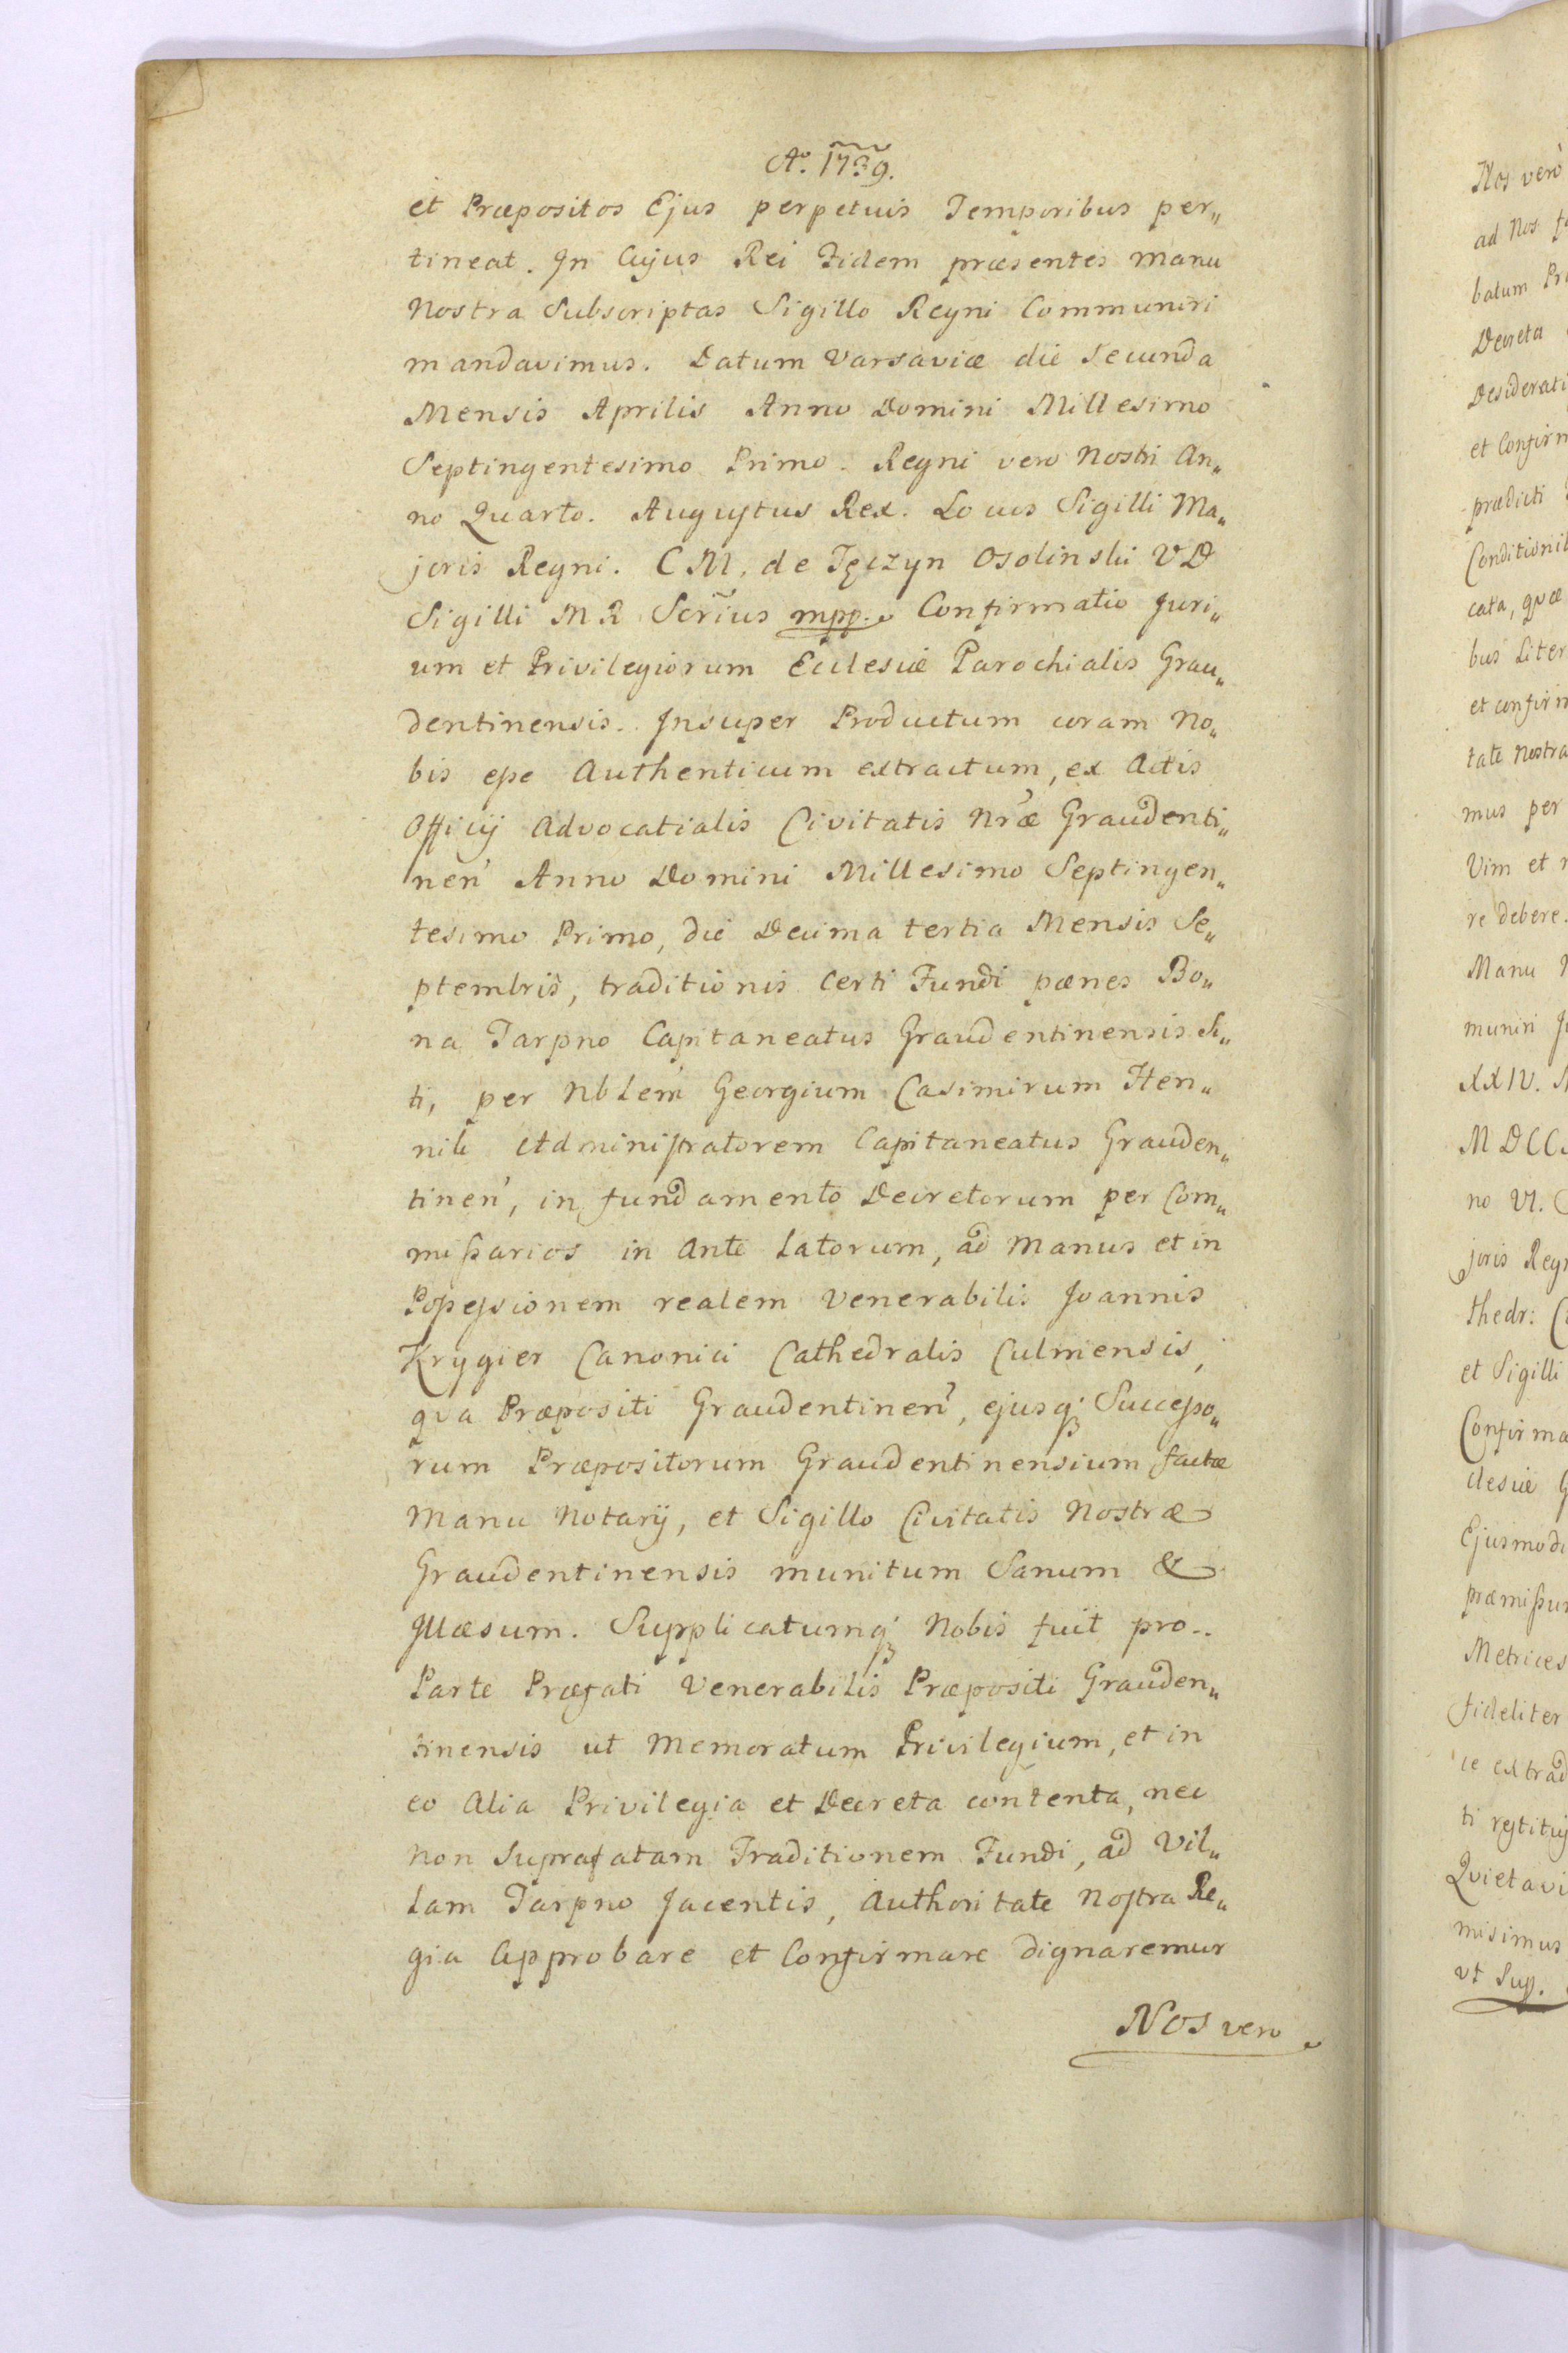 Ao. 1739.
et Præpositos Ejus perpetuis Temporibus per„
tineat. In Cujus Rei Fidem præsentes manu
Nostra Subscriptas Sigillo Regni Communiri
mandavimus. Datum Varsaviæ die Secunda
Mensis Aprilis Anno Domini Millesimo
Septingentesimo Primo. Regni vero Nostri An„
no Quarto. Augustus Rex. Locus Sigilli Ma„
joris Regni. C M. de Tęczyn Osolinski V D
Sigilli M R Scrīus mpp. Confirmatio Juri„
um et Privilegiorum Ecclesiæ Parochialis Grau„
dentinensis. Insuper Productum coram No„
bis eße Authenticum extractum, ex Actis
Officij Advocatialis Civitatis Nræ Graudenti„
nen Anno Domini Millesimo Septingen„
tesimo Primo, die Decima tertia Mensis Se„
ptembris, traditionis certi Fundi pænes Bo„
na Tarpno Capitaneatus Graudentinensis Si„
ti, per Nblem Georgium Casimirum Hen„
nik Administratorem Capitaneatus Grauden„
tinen, in fundamento Decretorum per Com„
mißarios in Ante Latorum, ad Manus et in
Poßeßionem realem Venerabilis Joannis
Krygier Canonici Cathedralis Culmensis,
qva Præpositi Graudentinen, ejusq; Succeßo„
rum Præpositorum Graudentinensium factæ
Manu Notarij, et Sigillo Civitatis Nostræ
Graudentinensis munitum Sanum &
Illæsum. Supplicatumq; Nobis fuit pro„
Parte Præfati Venerabilis Præpositi Grauden„
tinensis ut Memoratum Privilegium, et in
eo Alia Privilegia et Decreta contenta, nec
non Suprafatam Traditionem Fundi, ad Vil„
lam Tarpno Jacentis, Authoritate Nostra Re„
gia Approbare et Confirmare dignaremur
Nos vero
Nos vero
ad Nos
batum
Decreta
Desiderati
et Confirm
prædicti
Conditionib
cata, quæ
bus Liter
et confirm
tate Nostra
mus per
Vim et
re debere.
Manu
muniri
XXIV.
M DCC
no VI.
joris Reg
thedr:
et Sigilli
Confirma
clesiæ
Ejusmodi
præmißu
Metrices
fideliter
ce extrad
ti restitu
Qvietavi
misimus
vt Sup.